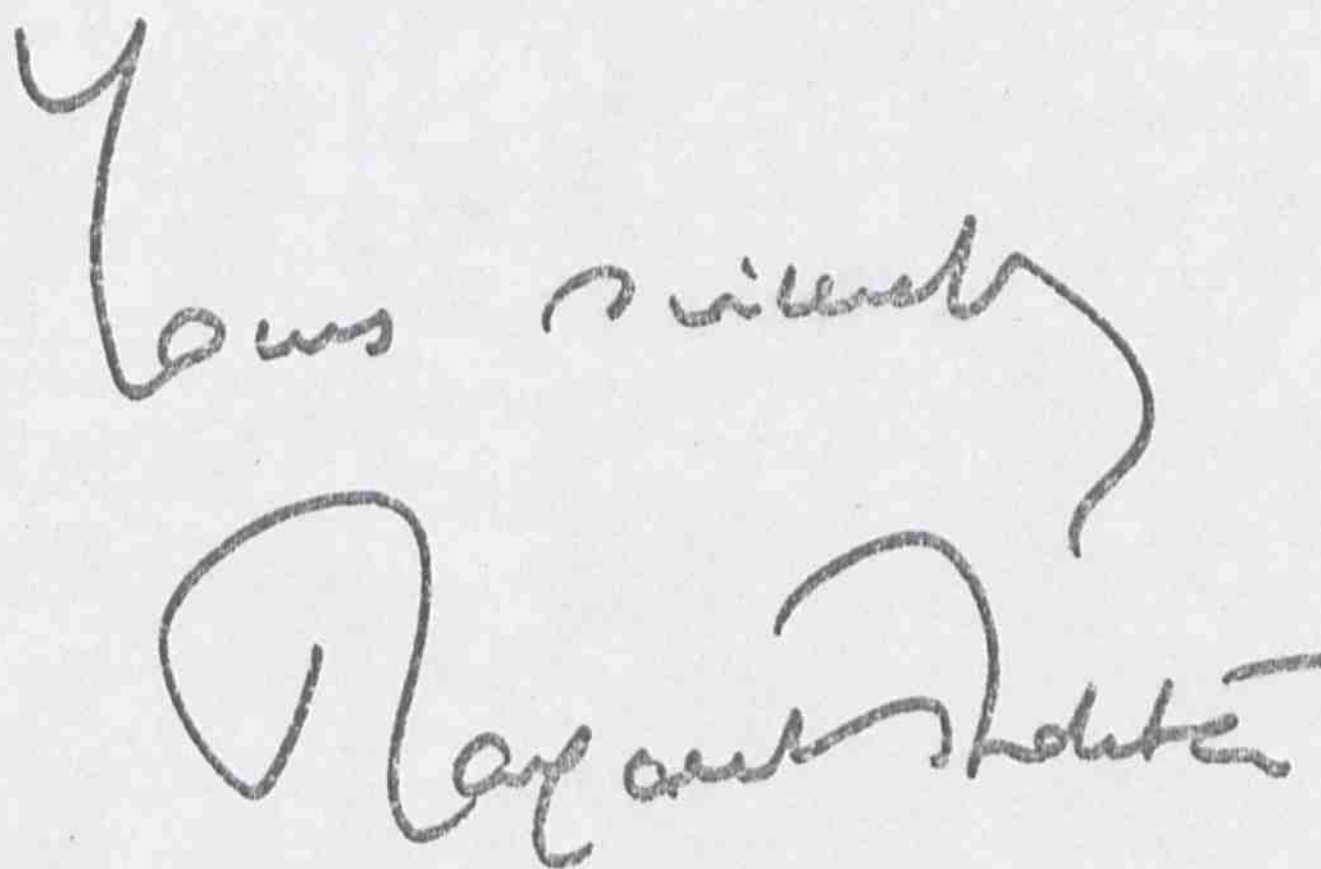 Yours sincerely
Margaret Thatcher